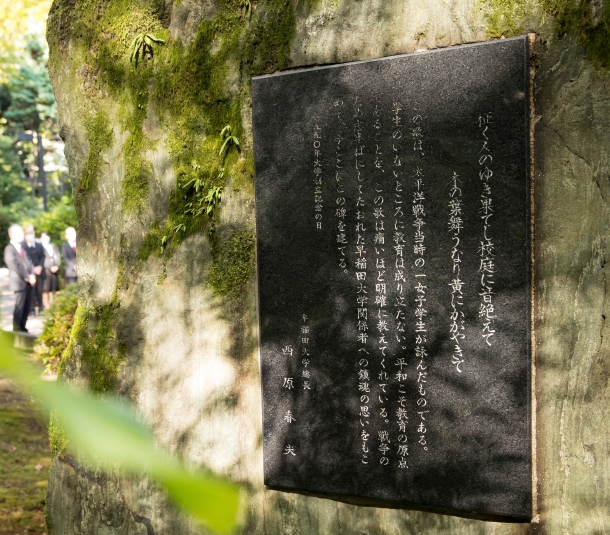 征く人のゆき果てし校庭に音絶えて
木の葉舞うなり黄にかがやきて
この歌は、太平洋戦争当時の一女子学生が詠んだものである。
学生のいないところに教育は成り立たない。平和こそ教育の原点
であることを、この歌は痛いほど明確に教えてくれている。戦争の
ため志なかばにしてたおれた早稲田大学関係者への鎮魂の思いをもこ
めて、ここにこの碑を建てる。
一九九〇年大学創立記念の日
早稲田大学総長
西原春夫